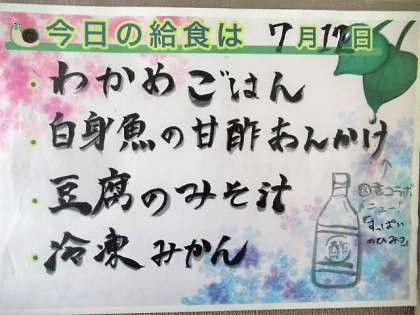 今日の給食は 7月17日
・わかめごはん
・白身魚の甘酢あんかけ
・豆腐のみそ汁
・冷凍みかん
酢
図書コラボ
メニュー
「すっぱい
のひみつ」